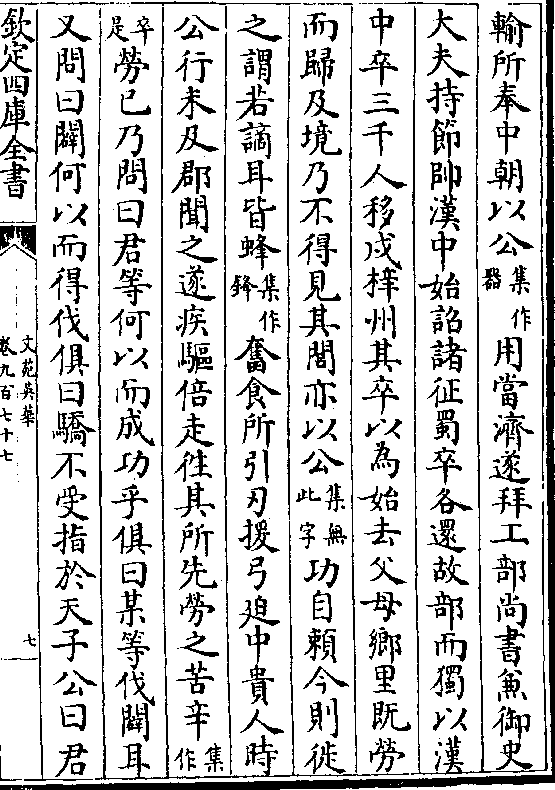 輸所奉中朝以公集作器用當濟遂拜工部尚書兼御史
大夫持節帥漢中始詔諸征蜀卒各還故部而獨以漢
中卒三千人移戍梓州其卒以為始去父母鄉里既勞
而歸及境乃不得見其閭亦以公集無此字功自頼今則徙
之謂若謫耳皆蜂集作鋒奮食所引刃援弓廹中貴人時
公行未及郡聞之遂疾驅倍走徃其所先勞之苦辛集作
卒是勞已乃問曰君等何以而成功乎俱曰某等伐闢耳
又問曰闢何以而得伐俱曰驕不受指於天子公曰君
欽定四庫全書
文苑英華
卷九百七十七
七